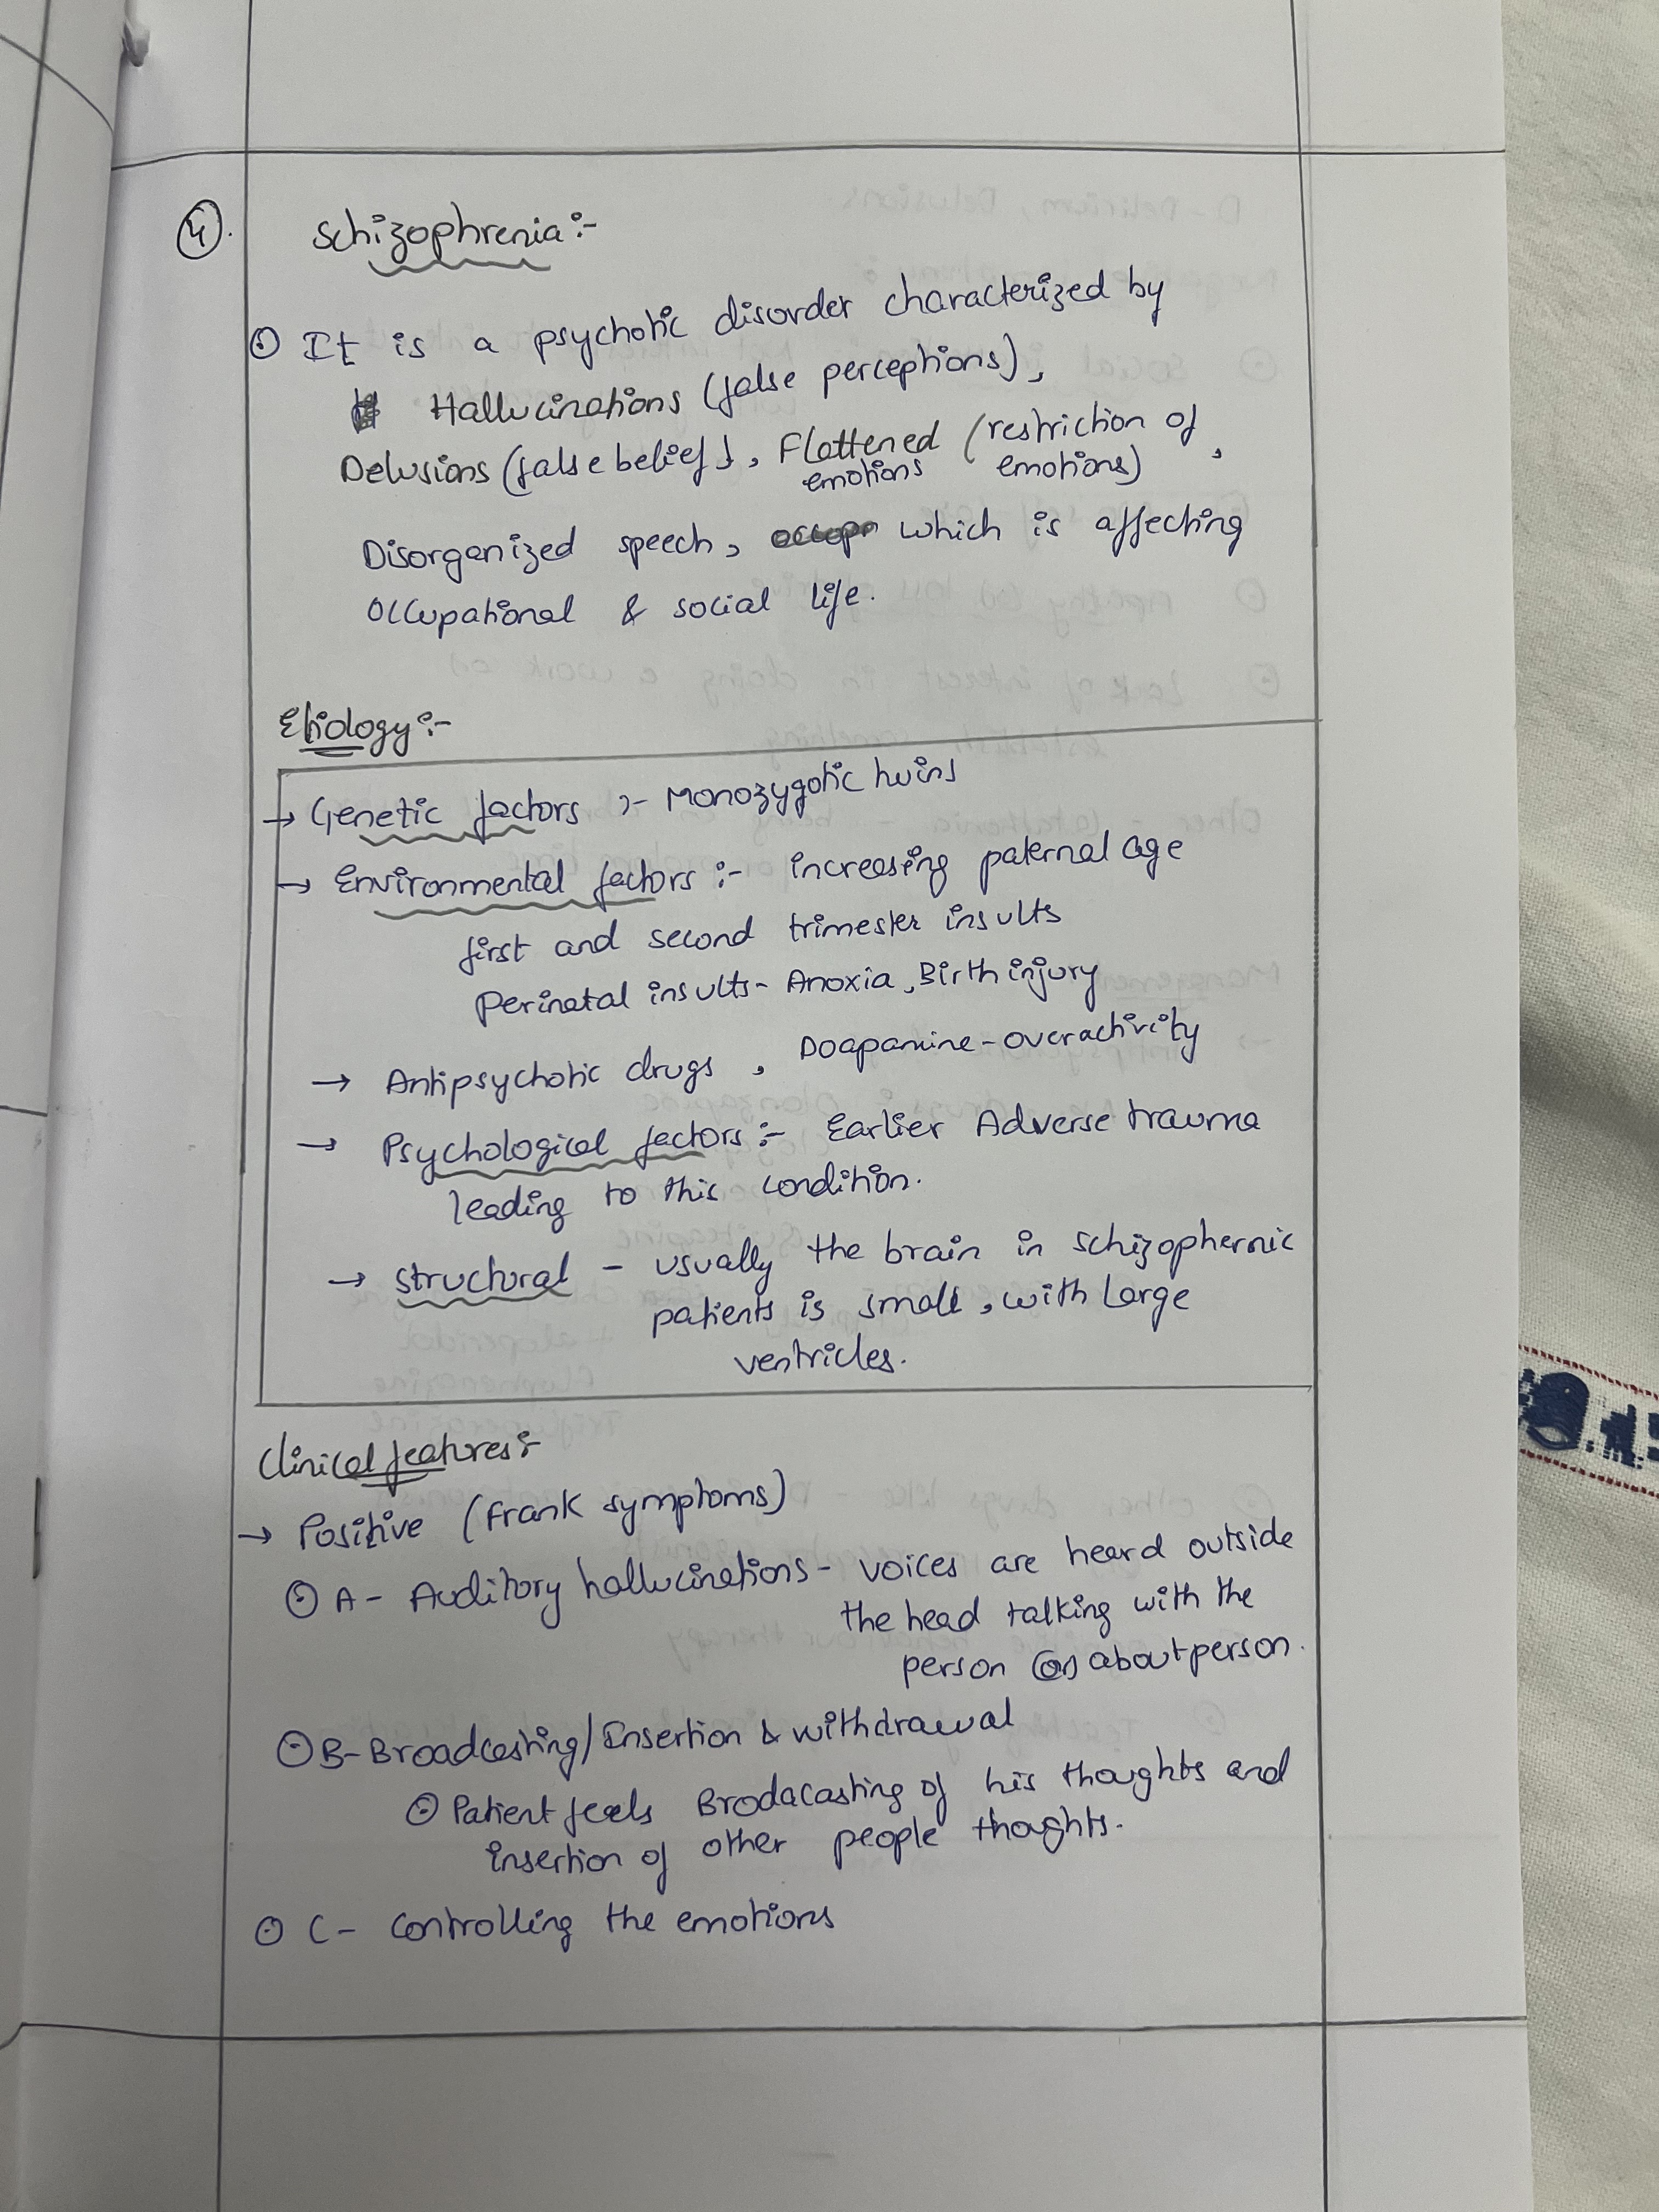 4.
Schizophrenia:-
It is a psychotic disorder characterized by
Hallucinations (false perceptions),
Delusions (false belief), Flattened emotions (restriction of emotions),
Disorganized speech, which is affecting
Occupational & social life.
Etiology:-
→ Genetic factors :- Monozygotic twins
→ Environmental factors :- increasing paternal age
first and second trimester insults
Perinatal insults- Anoxia, Birth injury
→ Antipsychotic drugs, Doapamine-overactivity
→ Psychological factors:- Earlier Adverse trauma
leading to this condition.
→ structural - usually the brain in schizophernic
patients is small, with Large
ventricles.
Clinical features:-
→ Positive (Frank symptoms)
A- Auditory hallucinations- voices are heard outside
the head talking with the
person (or) about person.
B- Broadcasting/Insertion & withdrawal
Patient feels Brodacasting of his thoughts and
insertion of other people thoughts.
C- Controlling the emotions